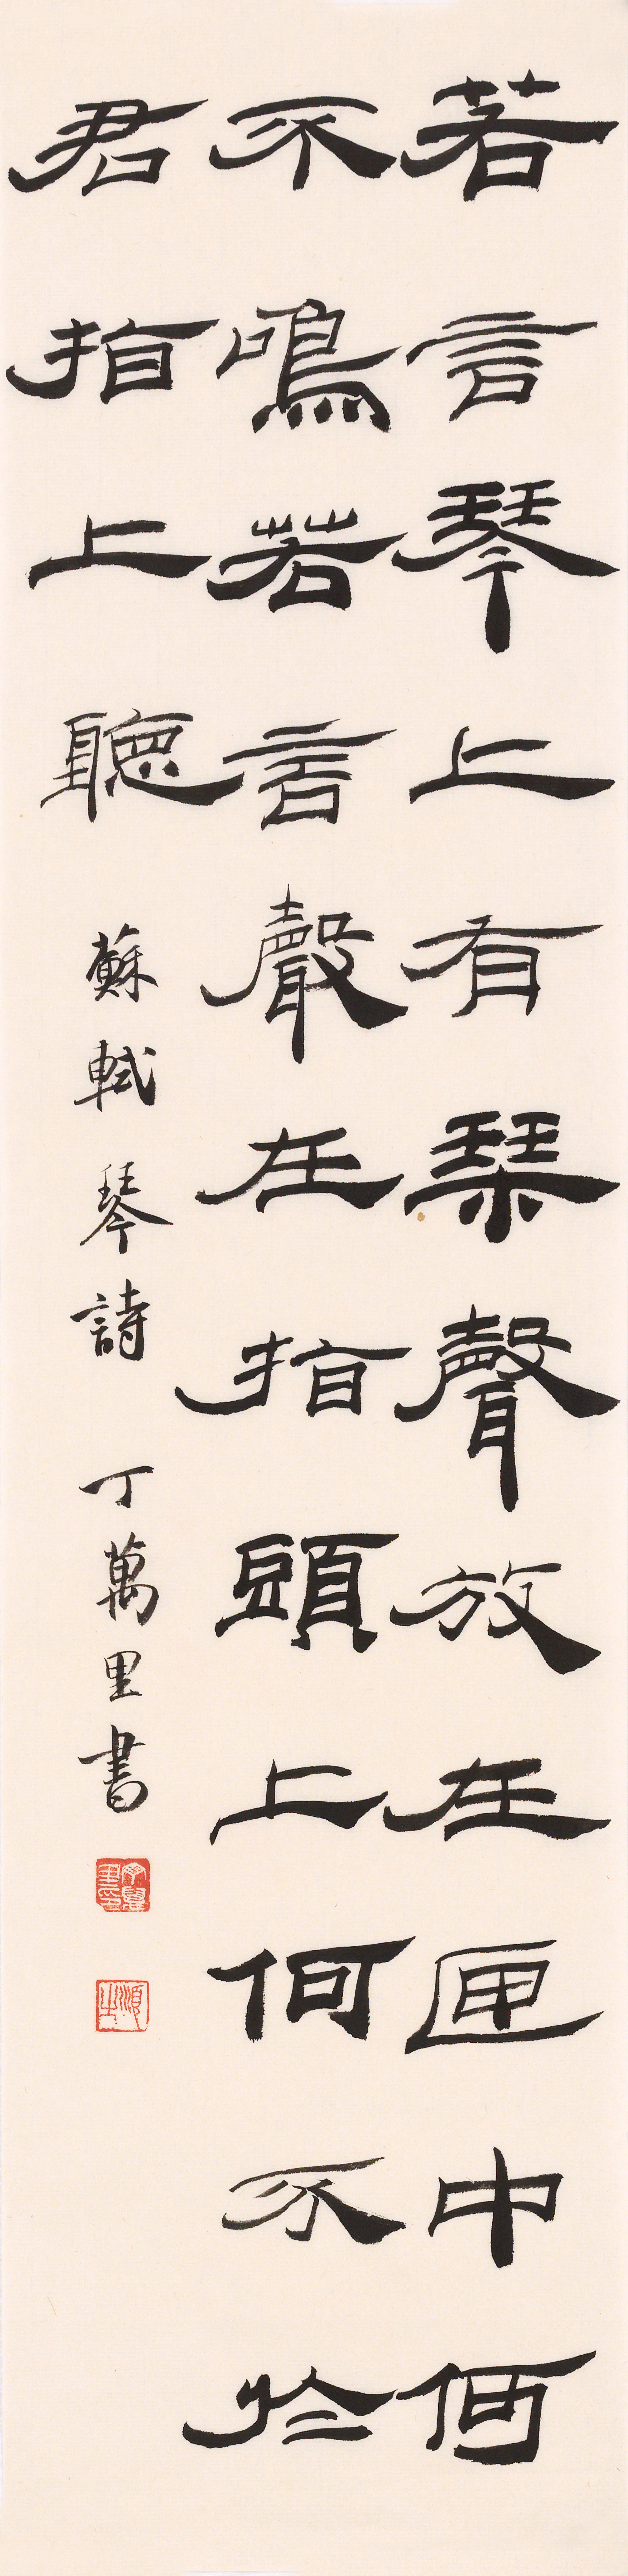 若言琴上有琹聲放在匣中何
不鳴若言聲在指頭上何不於
君指上聽
蘇軾琴詩 丁萬里書